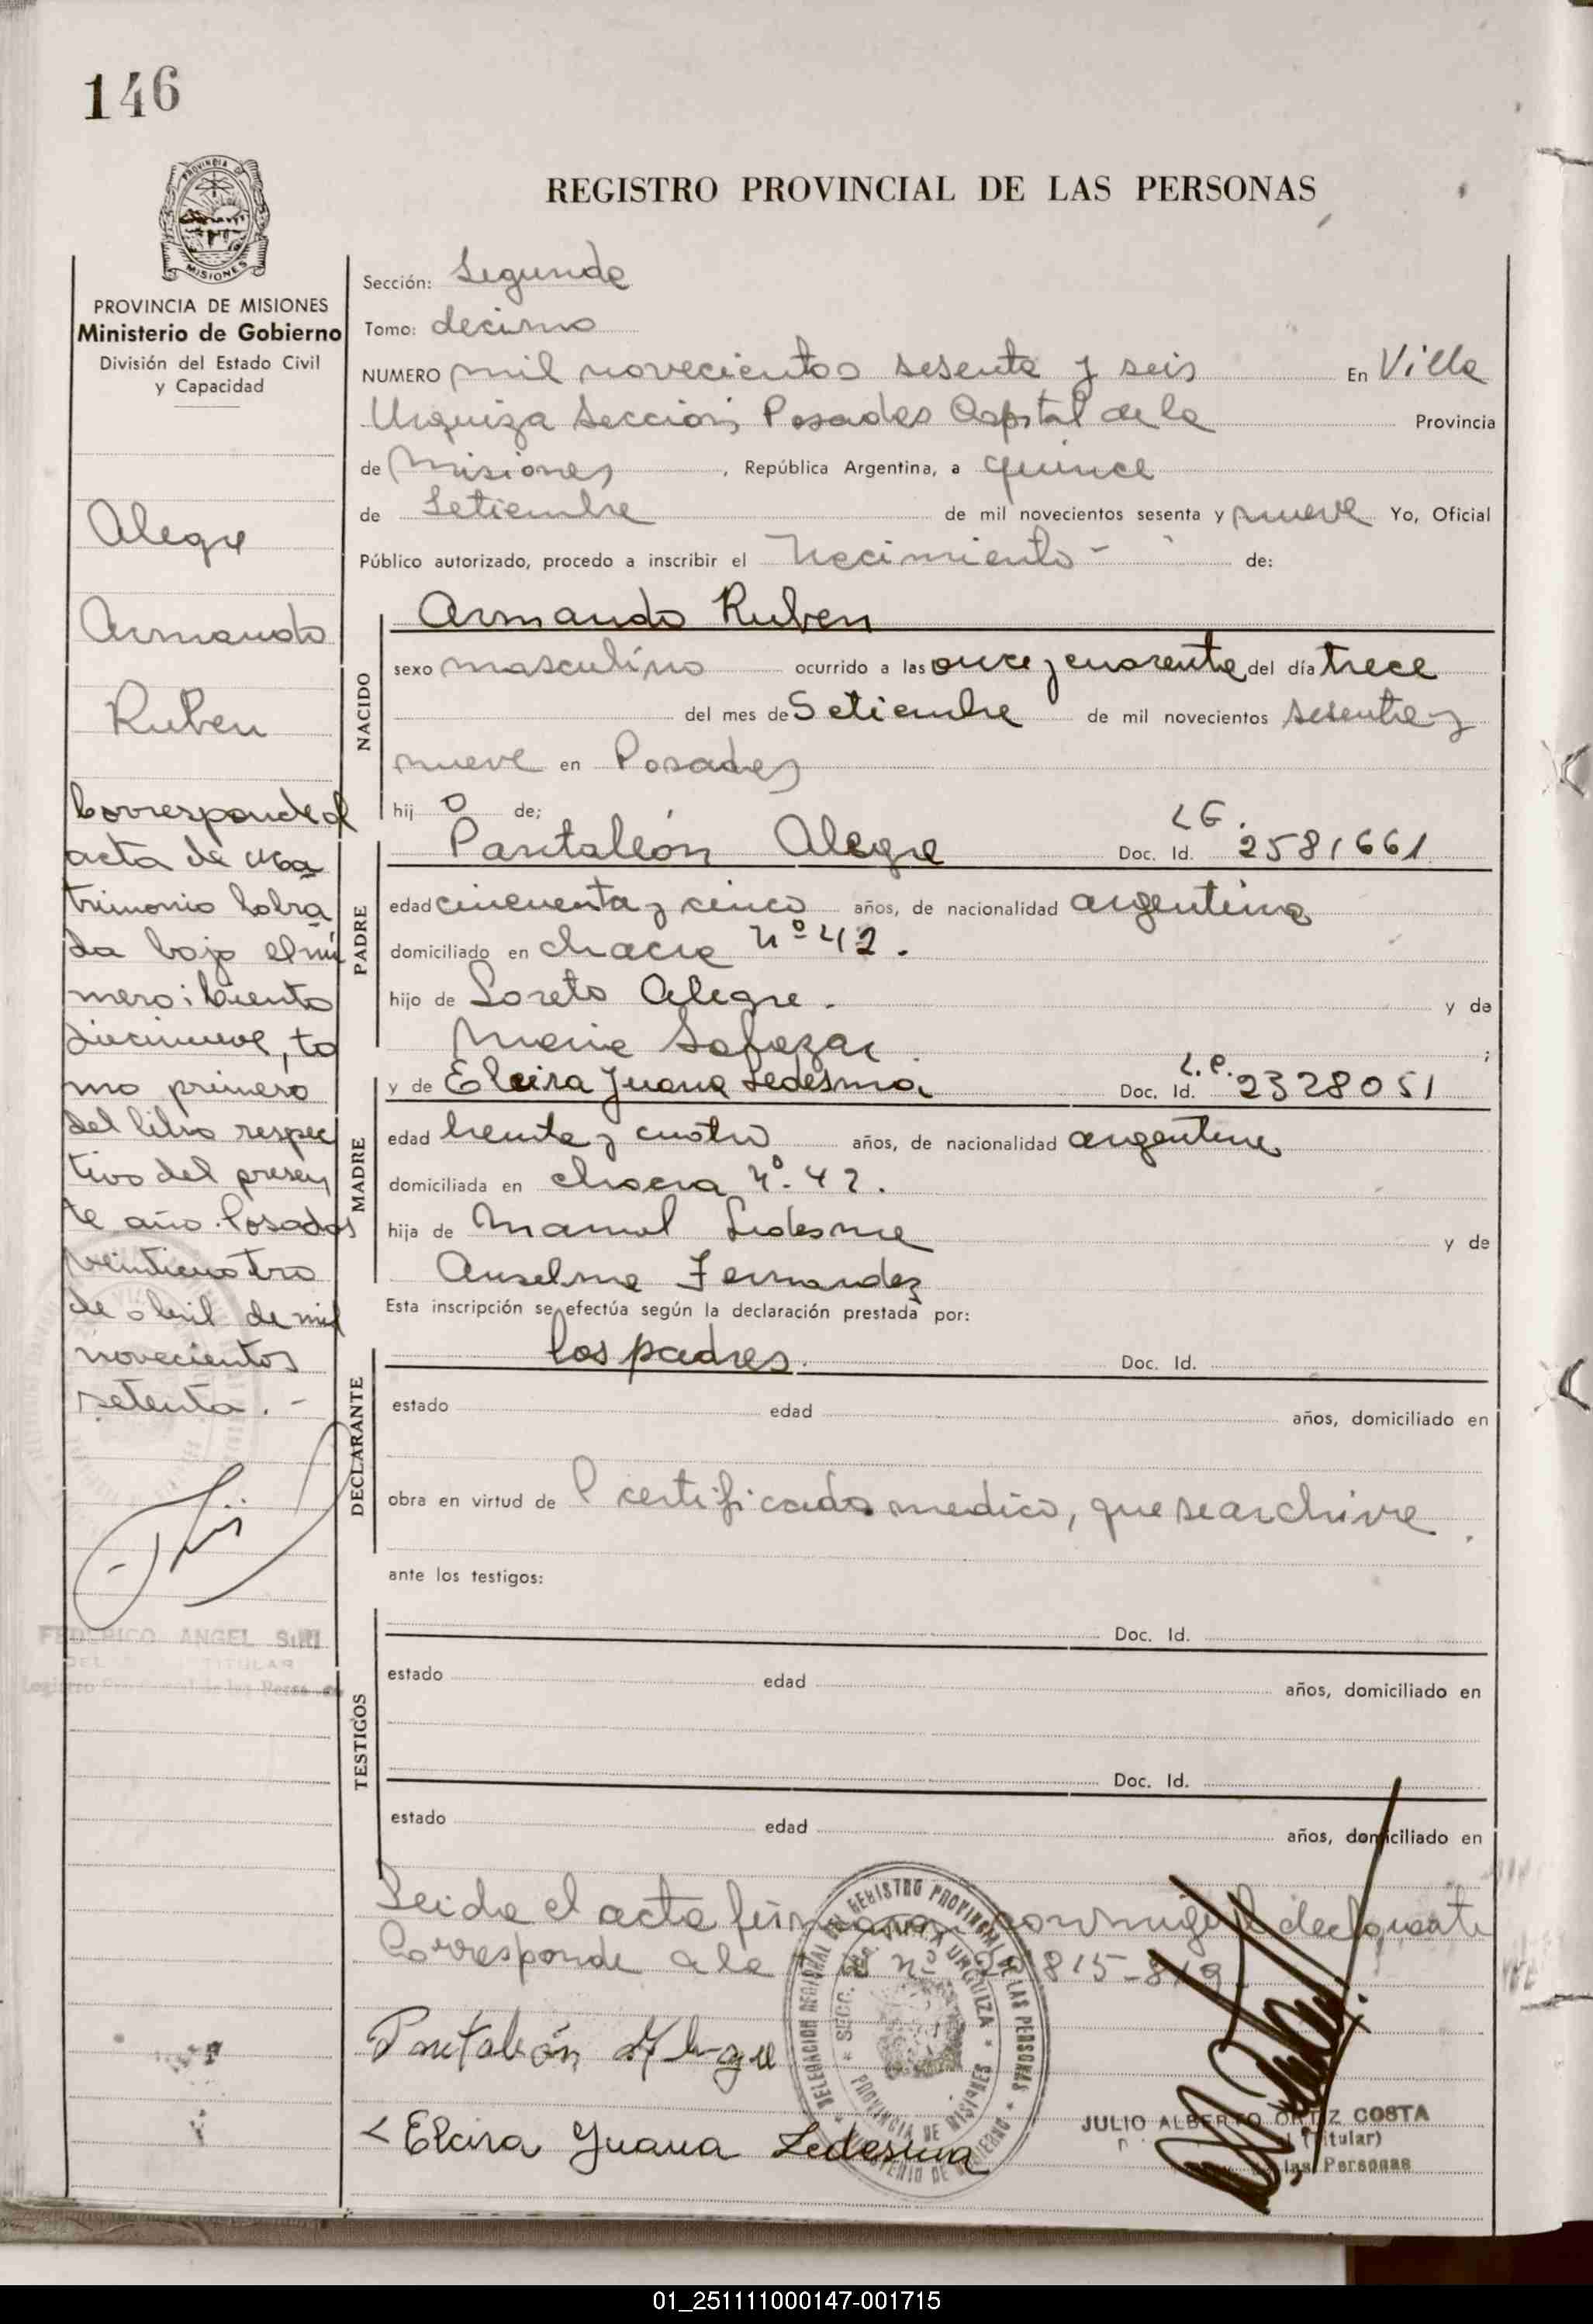 146
PROVINCIA
MISIONES
PROVINCIA DE MISIONES
Ministerio de Gobierno
División del Estado Civil
y Capacidad
Alegre
Armando
Ruben
Corresponde al
acta de Ma
trimonio labra
da bajo el nú
mero: Ciento
diecinueve, to
mo primero
del libro respec
tivo del presen
te año. Posadas
veinticuatro
de abril de mil
novecientos
setenta.-
FEDERICO ANGEL
TITULAR
REGISTRO PROVINCIAL DE LAS PERSONAS
Sección: Segunda
Tomo: decimo
NUMERO mil novecientos sesenta y seis En Villa
Urquiza Seccion, Posadas Capital de la Provincia
de Misiones, República Argentina, a quince
de Setiembre de mil novecientos sesenta y nueve Yo, Oficial
Público autorizado, procedo a inscribir el Nacimiento - de:
NACIDO
Armando Ruben
sexo masculino ocurrido a las once y cuarenta del día trece
del mes de Setiembre de mil novecientos sesenta y
nueve en Posadas
hij o de;
PADRE
Pantaleón Alegre Doc. Id. 2581661
edad cincuenta y cinco años, de nacionalidad argentina
domiciliado en chacra Nº 42.
hijo de Loreto Alegre. y de
Maria Salazar ;
MADRE
y de Elcira Juana Ledesma Doc. Id. L.C. 2328051
edad treinta y cuatro años, de nacionalidad argentina
domiciliada en chacra Nº. 42.
hija de Manuel Ledesma y de
Anselma Fernandez
Esta inscripción se efectúa según la declaración prestada por:
DECLARANTE
los padres. Doc. Id.
estado edad años, domiciliado en
obra en virtud de l certificado medico, que se archiva.
ante los testigos:
TESTIGOS
Doc. Id.
estado edad años, domiciliado en
Doc. Id.
estado edad años, domiciliado en
Leida el acta firman conmigo declarante
Corresponde a la nº 815-819
DELEGACION REGIONAL DEL REGISTRO PROVINCIAL DE LAS PERSONAS
SECC. VILLA URQUIZA
PROVINCIA DE MISIONES
MINISTERIO DE GOBIERNO
Pantaleón Alegre
Elcira Juana Ledesma
JULIO ALBERTO ORTIZ COSTA
(Titular)
las Personas
01_251111000147-001715